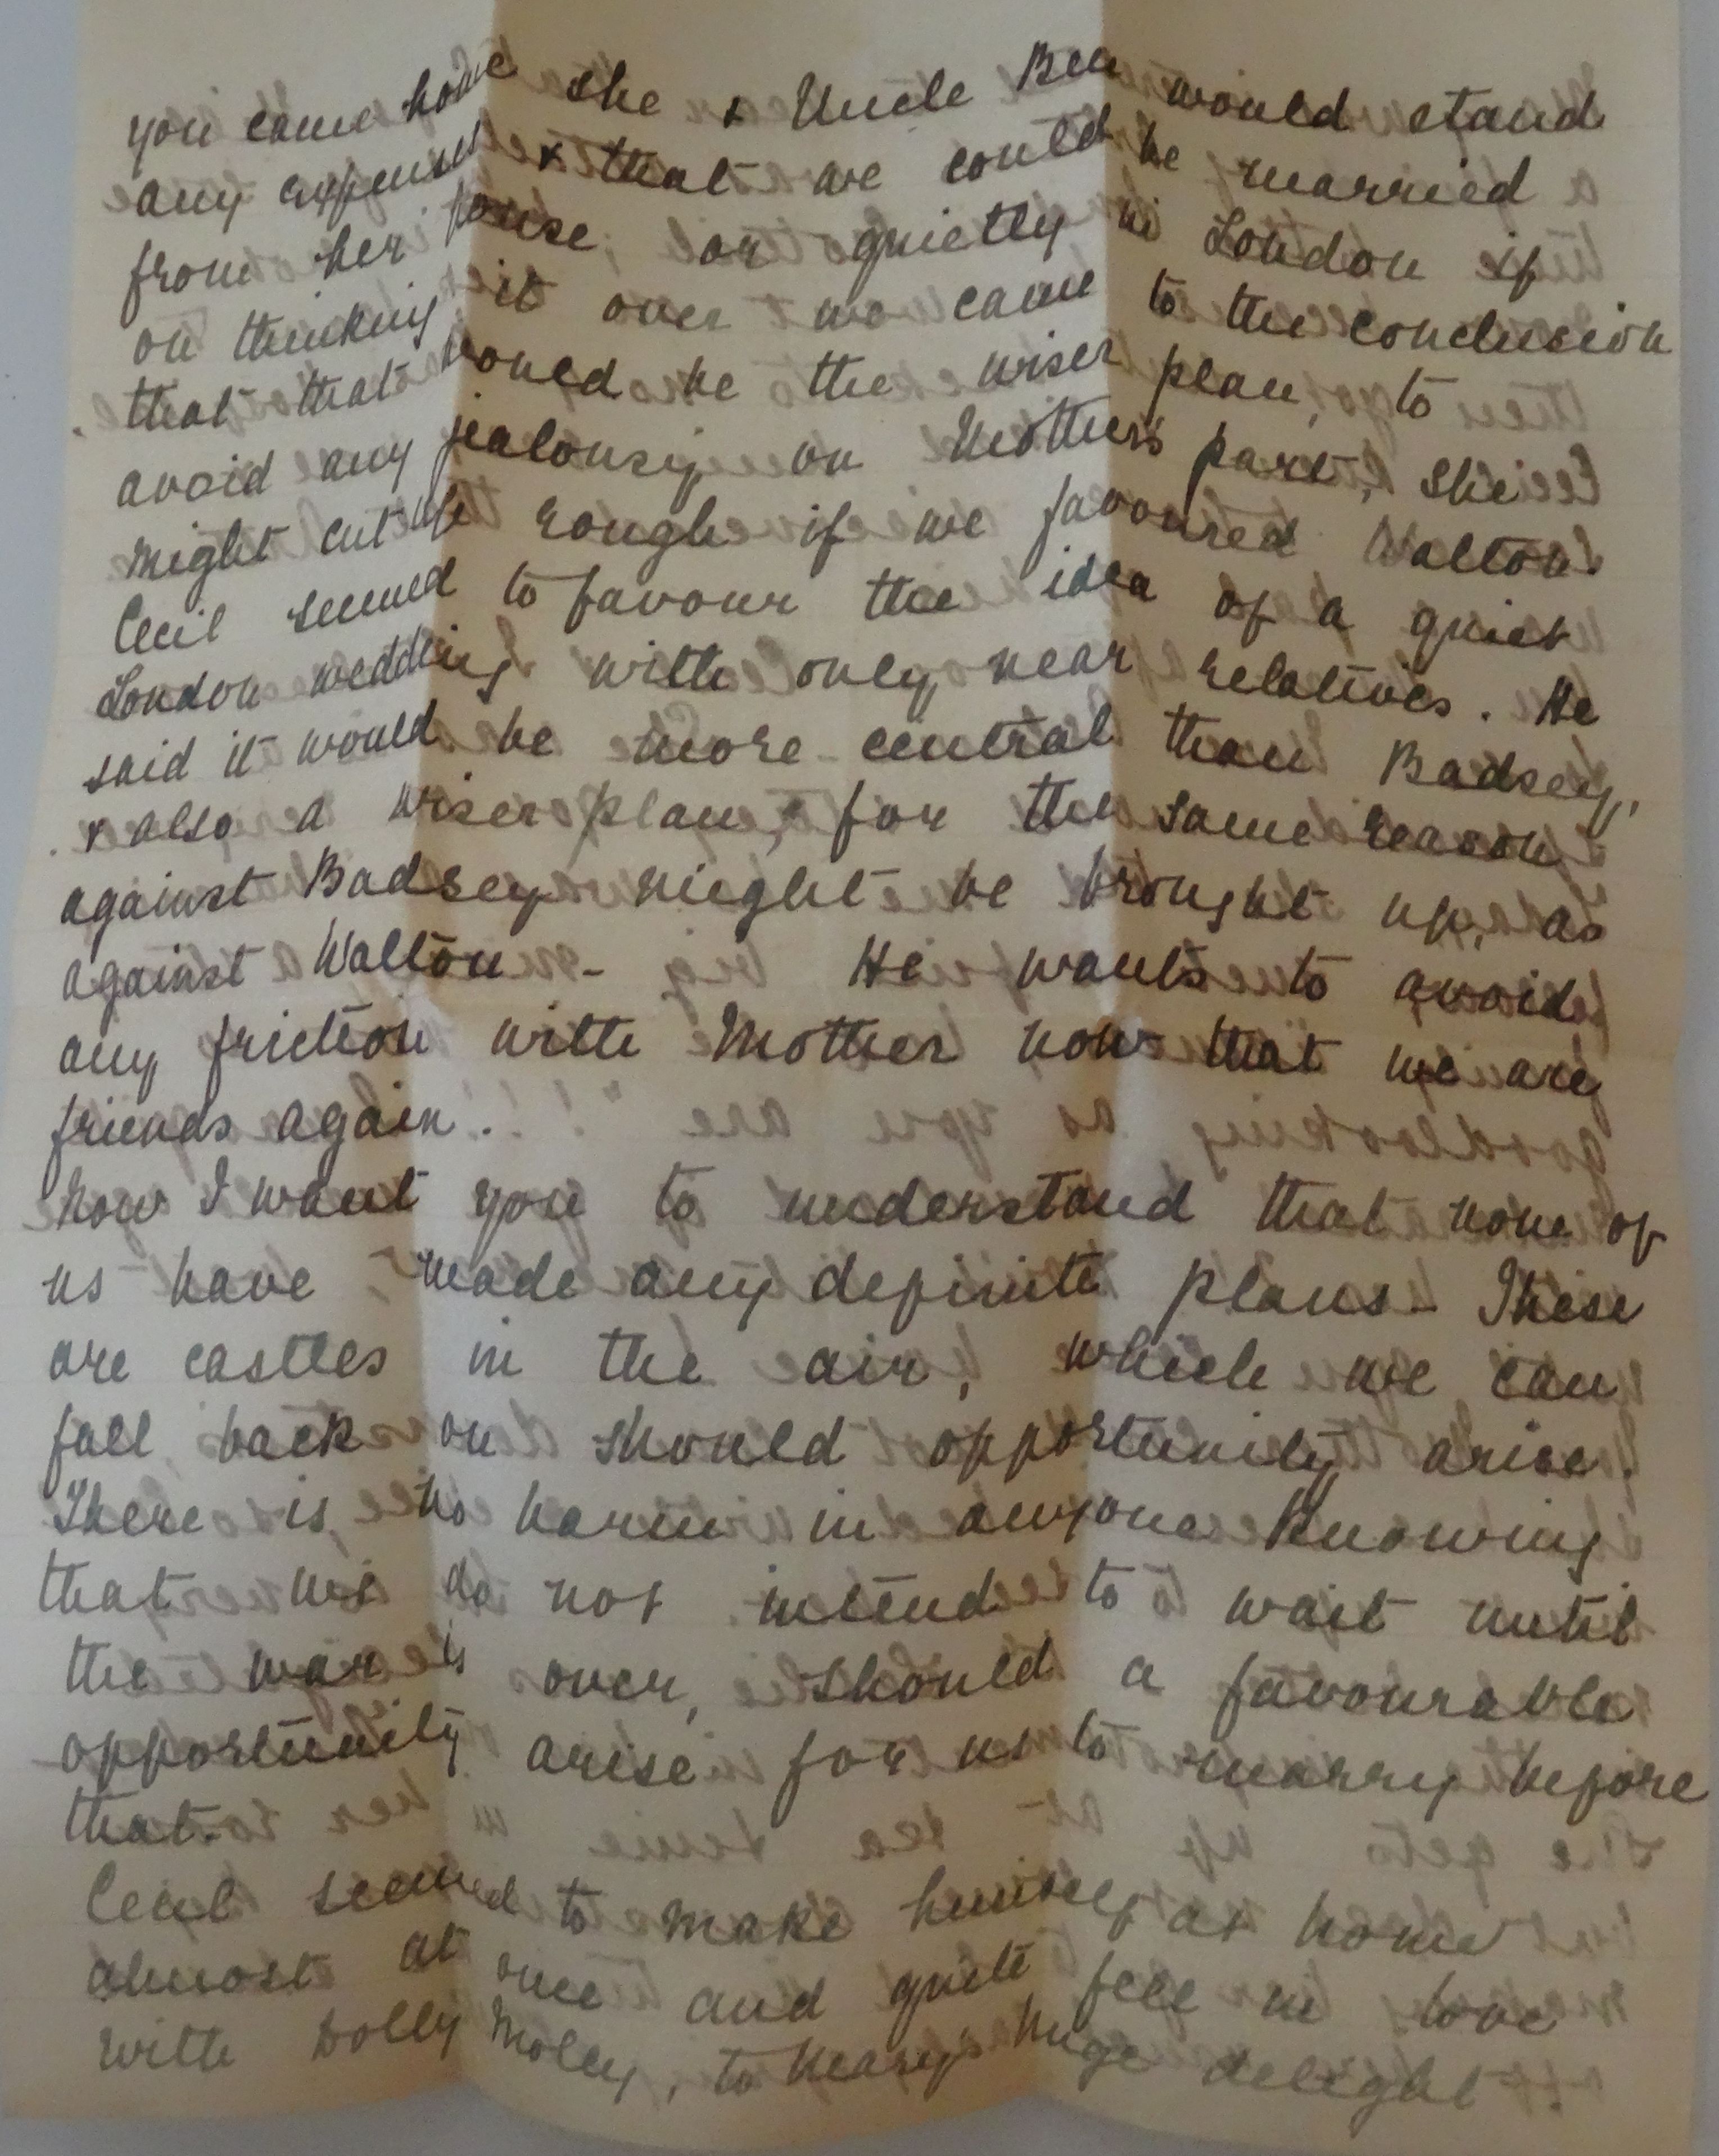 you came home she & Uncle Ben would stand
any expenses & that we could be married
from her house or quietly in London if
on thinking it over we came to the conclusion
that that would be the wiser plan, to
avoid any jealousy on Mothers part, She
might cut up rough if we favoured Walton.
Cecil seemed to favour the idea of a quiet
London wedding with only near relatives. He
said it would be more central than Badsey,
& also a wiser plan, for the same reason
against Badsey might be brought up, as
against Walton - He wants to avoid
any friction with Mother now that we are
friends again.
Now I want you to understand that none of
us have made any definite plans - These
are castles in the air, which we can
fall back on should opportunity arise.
There is no harm in anyone knowing
that we do not intend to wait until
the war is over, should a favourable
opportunity arise for us to marry before
that.
Cecil seemed to make himself at home
almost at once and quite fell in love
with Dolly Molly, to huge delight